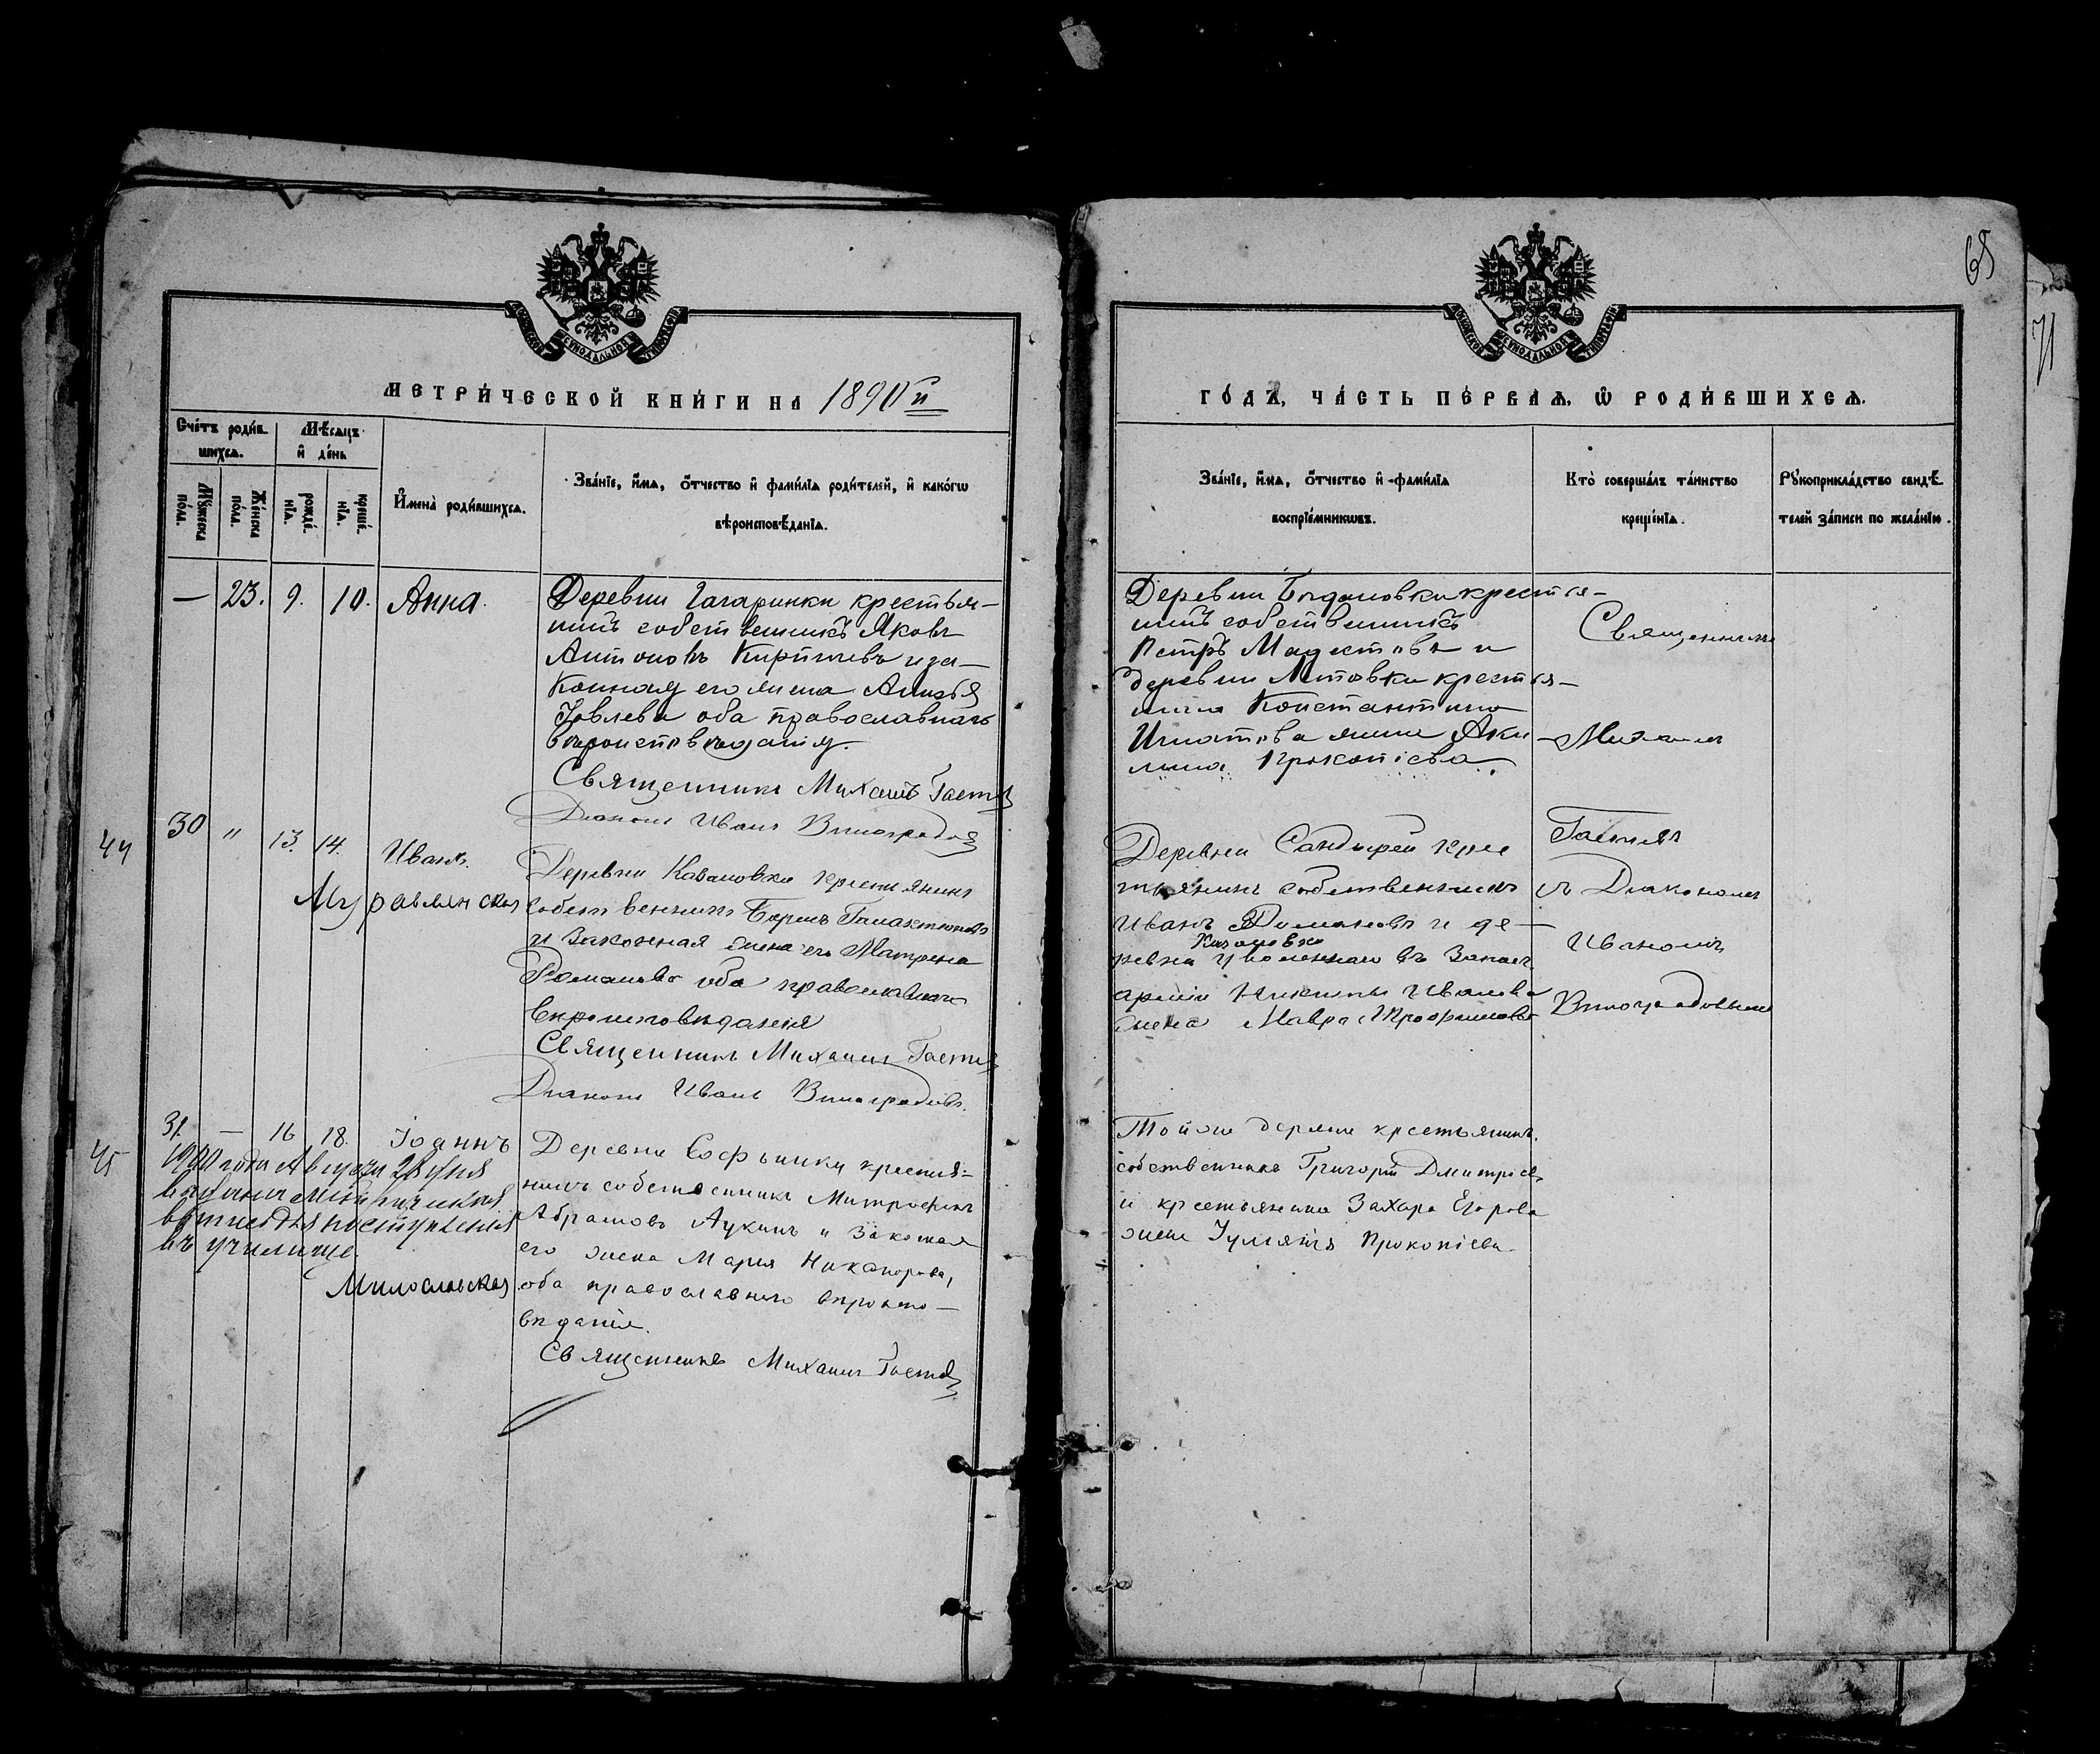 65
71
МЕТРИ́ЧЕСКОЙ КНИ́ГИ НА 1890 й
ГО́ДЪ, ЧА́СТЬ ПЕ́РВАѦ, Ѽ РОДИ́ВШИХСѦ.
Сче́тъ роди́в
шихсѧ.
Мꙋ́жеска по́ла.
Же́нска по́ла.
Мѣ́сѧцъ
и҆ де́нь
рожде́нїѧ.
креще́нїѧ.
И҆мена̀ роди́вшихсѧ.
Зва́нїе, и҆́мѧ, ѻ҆́тчество и҆ фами́лїѧ роди́телей, и҆ како́гѡ
вѣроисповѣ́данїѧ.
Зва́нїе, и҆́мѧ, ѻ҆́тчество и҆ фами́лїѧ
воспрїе́мникѡвъ.
Кто̀ соверша́лъ та́инство
креще́нїѧ.
Рꙋкоприкла́дство свидѣ́
телей за́писи по жела́нїю.
— 23. 9. 10. Анна.
Деревни Гагаринки крестья—
нинъ собственникъ Яковъ
Антоновъ и за—
конная его жена
Іовлева оба православнаго
вѣроисповѣданія.
Священникъ Михаилъ
Діаконъ Иванъ Виноградов
Деревни Богдановки крестья—
нинъ собственникъ
Петръ Модестовъ и
деревни крестья—
нина Константина
Игнатова жена Аки—
лина Прокопіева.
Священникъ
Михаилъ
44
30 " 13. 14. Иванъ.
Муравлянская
Деревни Казановки крестьянинъ
собственникъ Борисъ Галактіоновъ
и законная жена его Матрена
Романова оба православнаго
вѣроисповѣданія
Священникъ Михаилъ
Діаконъ Иванъ Виноградовъ.
Деревни Сандырей крес
тьянинъ собственникъ
Иванъ Романовъ и де—
Казановки
ревни уволеннаго въ запасъ
арміи Никиты Иванова
жена Мавра
съ Діакономъ
Иваномъ
Виноградовымъ
45
31. — 16 18. Іоаннъ
года Августа 28 дня
выдана метрическая
для поступленія
въ училище.
Милославская
Деревни Софьинки крестья=
нинъ собственникъ Митрофанъ
Абрамовъ Лукинъ и законная
его жена Марія Никанорова,
оба православнаго вѣроиспо—
вѣданія.
Священникъ Михаилъ
Той же деревни крестьянинъ
собственникъ Григорій Дмитріевъ
и крестьянина Захара Егорова
жена Іуліанія Прокопіева.